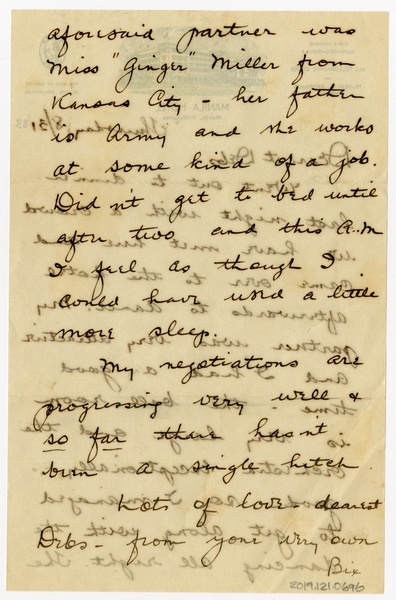 aforesaid partner was
Miss "Ginger" Miller from
Kansas City - her father
is Army and she works
at some kind of a job.
Didn't get to bed until
after two and this A.M
I feel as though I
could have used a little
more sleep.
My negotiations are
progressing very well &
so far there hasn't
been a single hitch
Lots of love dearest
Debs - from your very own
Bix
2019.121.0696